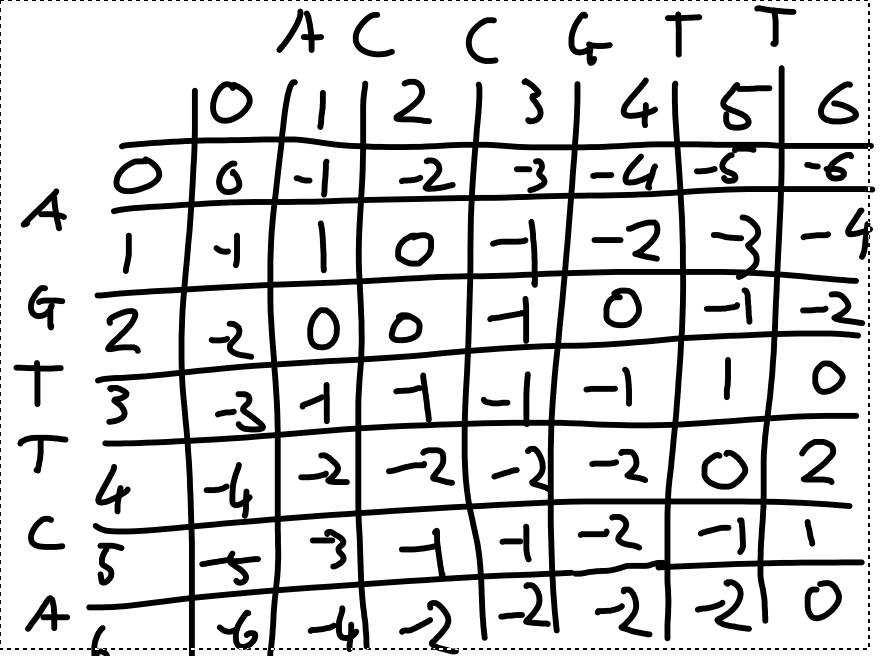 A C C G T T
0 1 2 3 4 5 6
0 0 -1 -2 -3 -4 -5 -6
A 1 -1 1 0 -1 -2 -3 -4
G 2 -2 0 0 -1 0 -1 -2
T 3 -3 -1 -1 -1 -1 1 0
T 4 -4 -2 -2 -2 -2 0 2
C 5 -5 -3 -1 -1 -2 -1 1
A 6 -6 -4 -2 -2 -2 -2 0